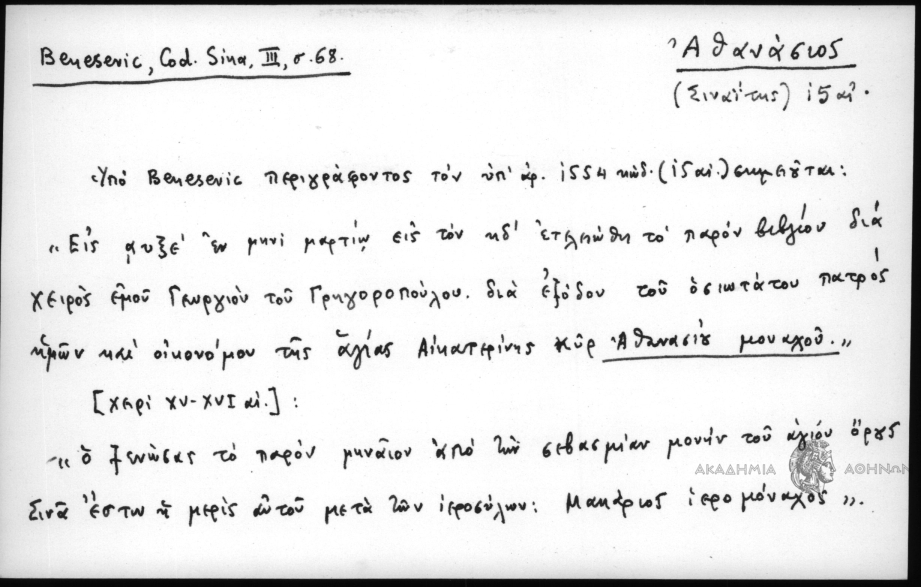 Benesevic, Cod. Sina, III, σ. 68.
Ἀθανάσιος
(Σιναΐτης) ι5 αἰ.
Ὑπό Benesevic περιγράφοντος τόν ὑπ' ἀρ. 1554 κώδ. (15 αἰ.) σημειοῦται:
"Εἰς αυξε' ἐν μηνί μαρτίῳ εἰς τόν κδ' ἐτελειώθη τό παρόν βιβλίου διά
χειρός ἐμοῦ Γεωργίου τοῦ Γρηγοροπούλου. διά ἐξόδου τοῦ ὁσιωτάτου πατρός
ἡμῶν καί οἰκονόμου τῆς ἁγίας Αἰκατερίνης κῦρ Ἀθανασίου μοναχοῦ."
[χερί XV-XVI αἰ.]:
"ὁ ξενώσας τό παρόν μηνᾶιον ἀπό τήν σεβασμίαν μονήν τοῦ ἁγίου ὄρους
Σινᾶ ἔστω ἡ μερίς αὐτοῦ μετά τῶν ἱεροσύλων: Μακάριος ἱερομόναχος".
ΑΚΑΔΗΜΙΑ ΑΘΗΝΩΝ